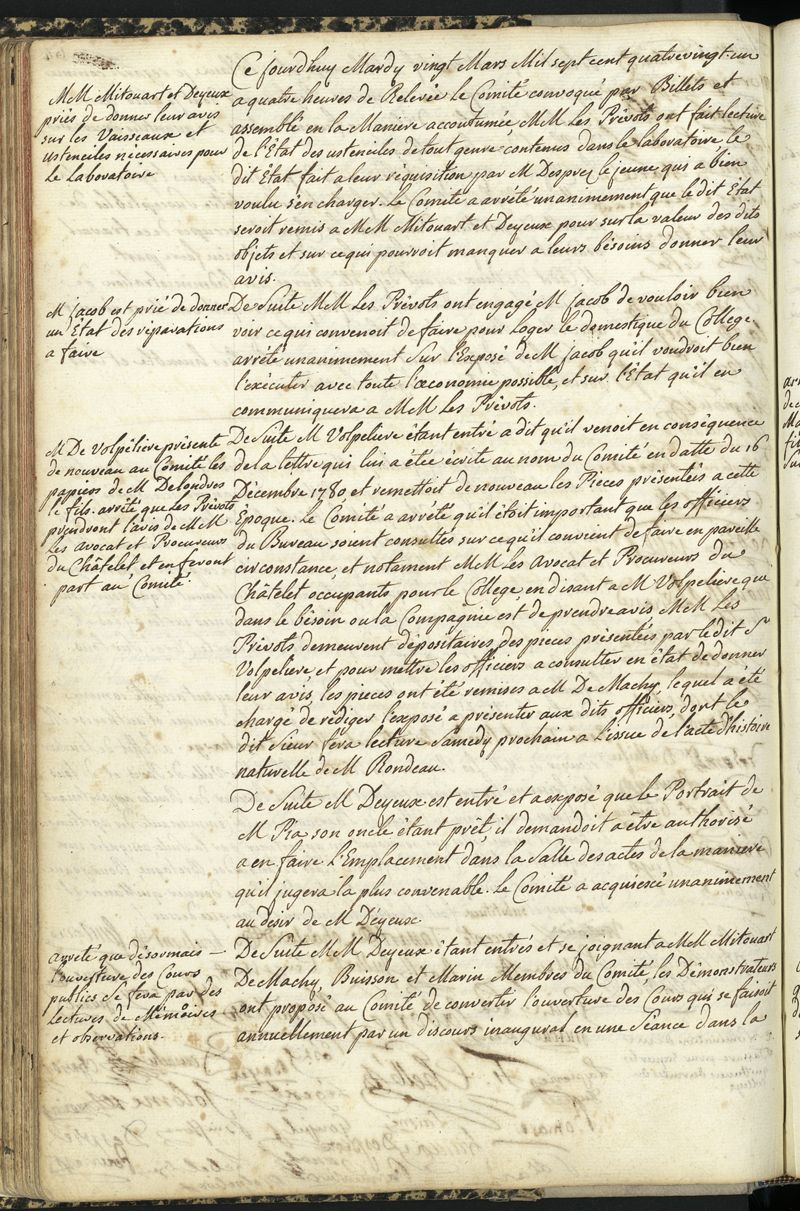 Ce jourdhuy Mardy vingt Mars Mil sept cent quatrevingt-un
a quatre heures de Relevée le Comité convoqué par Billets et
assemblé en la Maniere accoutumée, MM Les Prévots ont fait lecture
de l'Etat des ustenciles de tout genre contenus dans le laboratoire le
dit Etat fait a leur réquisition par M Desprez le jeune qui a bien
voulu s'en charger. Le Comité a arrété unanimement que le dit Etat
seroit remis a MM Mitouart et Deyeux pour sur la valeur des dits
objets et sur ce qui pourroit manquer a leurs bésoins donner leur
avis.
MM Mitouart et Deyeux
priés de donner leur avis
sur les Vaisseaux et
ustenciles nécessaires pour
Le Laboratoire
De Suite MM Les Prévots ont engagé M jacob de vouloir bien
voir ce qui convenoit de faire pour Loger le domestique du College
arrété unanimement sur l'Exposé de M jacob qu'il voudroit bien
l'exécuter avec toute l'œconomie possible, et sur l'Etat qu'il en
communiquera a MM Les Prévots.
M jacob est prié de donner
un Etat des réparations
a faire
De Suite M Volpeliere étant entré a dit qu'il venoit en conséquence
de la lettre qui lui a étée écrite au nom du Comité en datte du 16
Décembre 1780, et remettoit de nouveau les Pieces présentées a cette
Epoque. Le Comité a arrété qu'il étoit important que les officiers
du Bureau soient consultés sur ce qu'il convient de faire en pareille
circonstance, et notament MM Les Avocat et Procureurs du
Châtelet occupants pour le College, en disant a M Volpeliere que
dans le bésoin ou la Compagnie est de prendre avis MM Les
Prévots demeurent dépositaires des pieces présentées par le dit Sr
Volpeliere, et pour mettre les officiers a consulter en état de donner
leur avis, les pieces ont été remises a M De Machy, lequel a été
chargé de rédiger l'exposé a présenter aux dits officiers, dont le
dit Sieur fera lecture Samedy prochain a l'issue de l'acte d'histoire
naturelle de M Rondeau.
M De Volpéliere présente
de nouveau au Comité les
papiers de M Delondres
le fils. arrété que Les Prévots
prendront l'avis de MM
Les Avocat et Procureurs
du Châtelet et en feront
part au Comité.
De Suite M Deyeux est entré et a exposé que le Portrait de
M Pia son oncle étant prét, il demandoit a étre authorisé
a en faire l'Emplacement dans la Salle des actes de la maniere
qu'il jugera la plus convenable. Le Comité a acquiescé unanimement
au désir de M Deyeux.
De Suite MM Deyeux étant entrés et se joignant a MM Mitouart
De Machy, Buisson et Marin Membres du Comité, les Démonstrateurs
ont proposé au Comité de convertir l'ouverture des Cours qui se faisoit
annuellement par un discours inaugural en une Séance dans la
arreté que désormais
l'ouverture des Cours
publics se fera par des
Lectures de Mémoires
et observations.